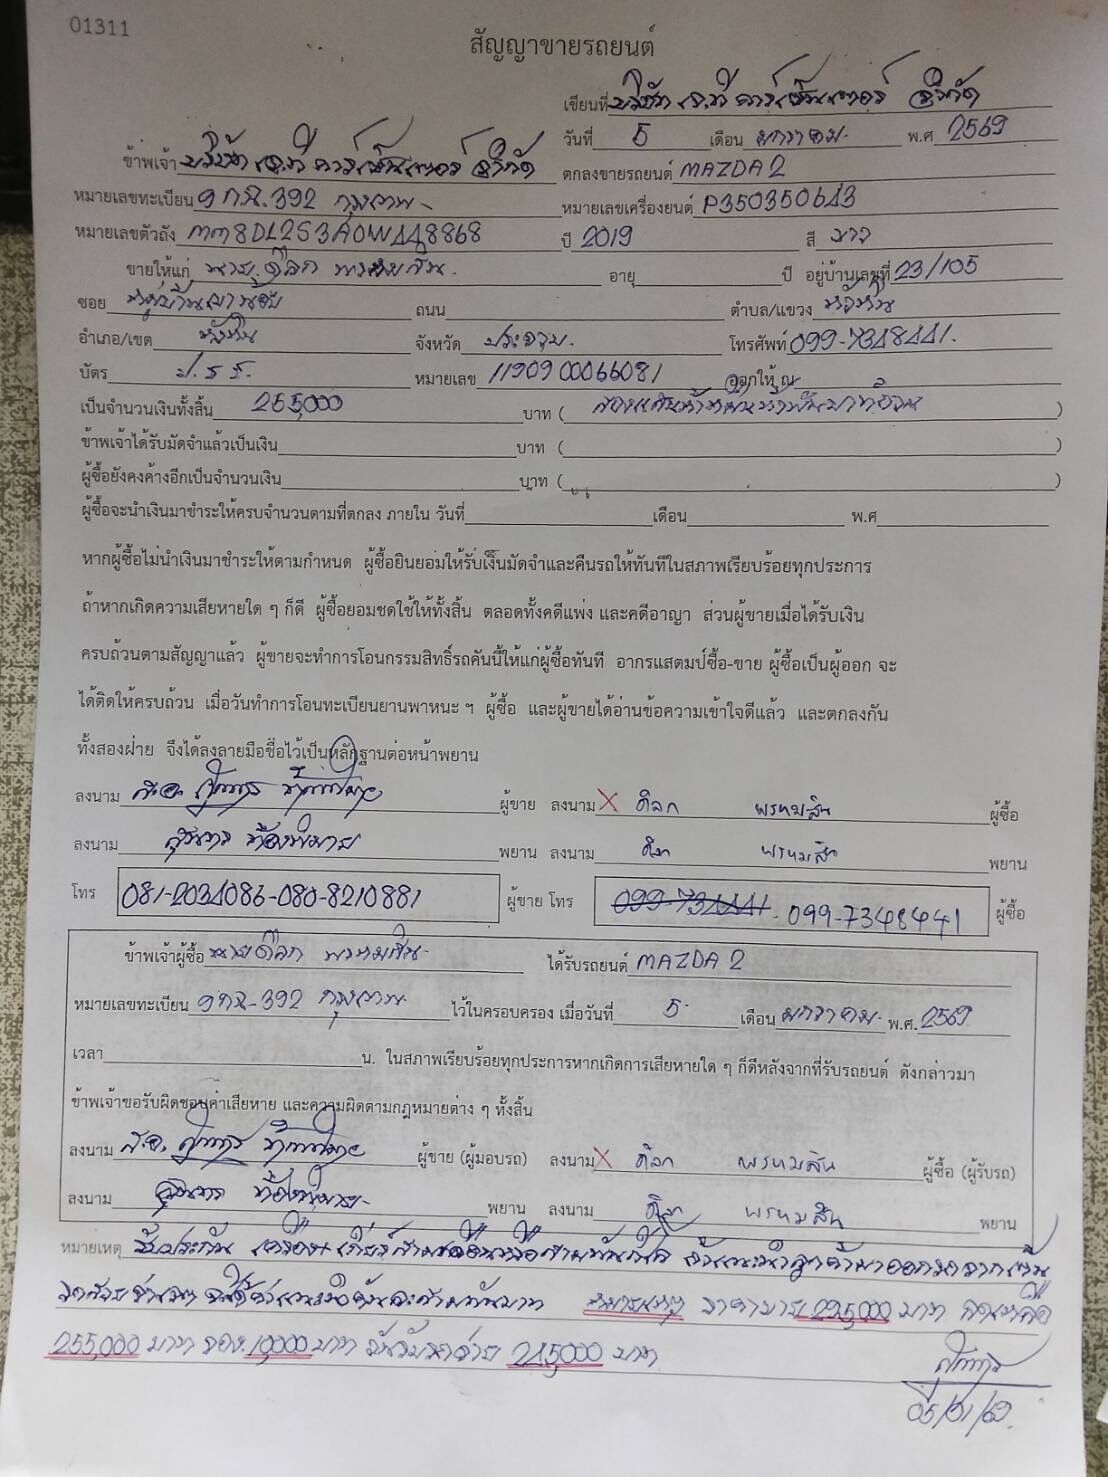 01311
สัญญาขายรถยนต์
เขียนที่ บริษัท เจ.ที คาร์เซ็นเตอร์ จำกัด
วันที่ 5 เดือน มกราคม พ.ศ. 2569
ข้าพเจ้า บริษัท เจ.ที คาร์เซ็นเตอร์ จำกัด ตกลงขายรถยนต์ MAZDA 2
หมายเลขทะเบียน 392 กรุงเทพ หมายเลขเครื่องยนต์ P350350643
หมายเลขตัวถัง MM8DL2S3A0W448868 ปี 2019 สี
ขายให้แก่ นาย ดิลก พรหมสิน อายุ ปี อยู่บ้านเลขที่ 23/105
ซอย หมู่บ้าน ถนน ตำบล/แขวง หัวหิน
อำเภอ/เขต หัวหิน จังหวัด ประจวบ โทรศัพท์ 099-7348441
บัตร ป.ช.ช. หมายเลข 1190900066081 ออกให้ ณ
เป็นจำนวนเงินทั้งสิ้น 255,000 บาท ( สองแสนห้าหมื่นห้าพันบาทถ้วน )
ข้าพเจ้าได้รับมัดจำแล้วเป็นเงิน บาท ( )
ผู้ซื้อยังคงค้างอีกเป็นจำนวนเงิน บาท ( )
ผู้ซื้อจะนำเงินมาชำระให้ครบจำนวนตามที่ตกลง ภายใน วันที่ เดือน พ.ศ
หากผู้ซื้อไม่นำเงินมาชำระให้ตามกำหนด ผู้ซื้อยินยอมให้ริบเงินมัดจำและคืนรถให้ทันทีในสภาพเรียบร้อยทุกประการ
ถ้าหากเกิดความเสียหายใด ๆ ก็ดี ผู้ซื้อยอมชดใช้ให้ทั้งสิ้น ตลอดทั้งคดีแพ่ง และคดีอาญา ส่วนผู้ขายเมื่อได้รับเงิน
ครบถ้วนตามสัญญาแล้ว ผู้ขายจะทำการโอนกรรมสิทธิ์รถคันนี้ให้แก่ผู้ซื้อทันที อากรแสตมป์ซื้อ-ขาย ผู้ซื้อเป็นผู้ออก จะ
ได้ติดให้ครบถ้วน เมื่อวันทำการโอนทะเบียนยานพาหนะ ฯ ผู้ซื้อ และผู้ขายได้อ่านข้อความเข้าใจดีแล้ว และตกลงกัน
ทั้งสองฝ่าย จึงได้ลงลายมือชื่อไว้เป็นหลักฐานต่อหน้าพยาน
ลงนาม ส.อ. ผู้ขาย ลงนาม X ดิลก พรหมสิน ผู้ซื้อ
ลงนาม พยาน ลงนาม ดิลก พรหมสิน พยาน
โทร 081-2034086-080-8210881 ผู้ขาย โทร 099-7348441 ผู้ซื้อ
ข้าพเจ้าผู้ซื้อ นาย ดิลก พรหมสิน ได้รับรถยนต์ MAZDA 2
หมายเลขทะเบียน 392 กรุงเทพ ไว้ในครอบครอง เมื่อวันที่ 5 เดือน มกราคม พ.ศ. 2569
เวลา น. ในสภาพเรียบร้อยทุกประการหากเกิดการเสียหายใด ๆ ก็ดีหลังจากที่รับรถยนต์ ดังกล่าวมา
ข้าพเจ้าขอรับผิดชอบค่าเสียหาย และความผิดตามกฎหมายต่าง ๆ ทั้งสิ้น
ลงนาม ส.อ. ผู้ขาย (ผู้มอบรถ) ลงนาม X ดิลก พรหมสิน ผู้ซื้อ (ผู้รับรถ)
ลงนาม พยาน ลงนาม ดิลก พรหมสิน พยาน
หมายเหตุ รับประกัน เครื่อง เกียร์
หมายเหตุ 225,000 บาท
255,000 บาท จอง 10,000 บาท 245,000 บาท
05/01/69